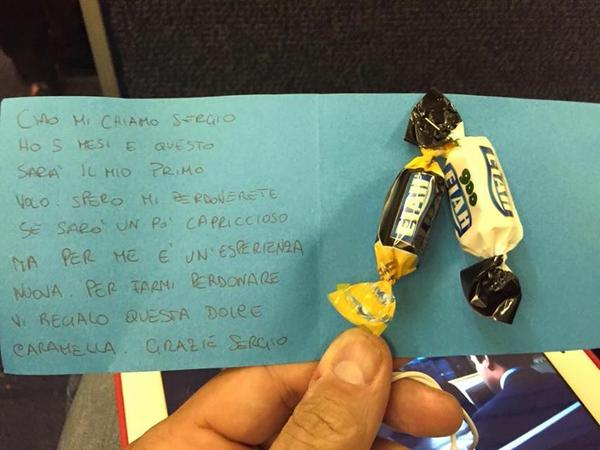 CIAO MI CHIAMO SERGIO
HO 5 MESI E QUESTO
SARA' IL MIO PRIMO
VOLO. SPERO MI PERDONERETE
SE SARO' UN PO' CAPRICCIOSO
MA PER ME E' UN'ESPERIENZA
NUOVA. PER FARMI PERDONARE
VI REGALO QUESTA DOLCE
CARAMELLA. GRAZIE SERGIO
ELAH
ELAH
ELAH